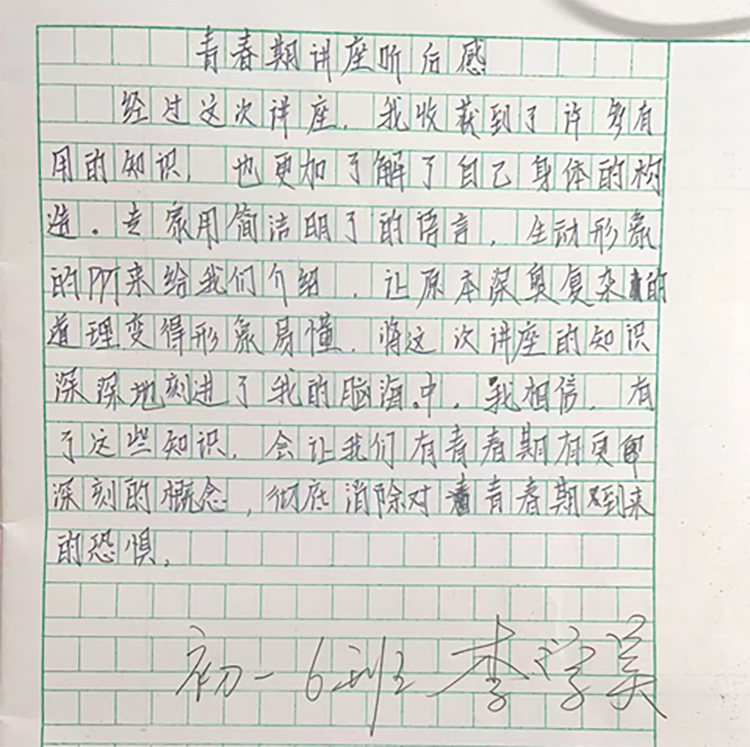 青春期讲座听后感
经过这次讲座，我收获到了许多有
用的知识，也更加了解了自己身体的构
造。专家用简洁明了的语言，生动形象
的PPT来给我们介绍，让原本深奥复杂的
道理变得形象易懂，将这次讲座的知识
深深地刻进了我的脑海中，我相信，有
了这些知识，会让我们有青春期有更
深刻的概念，彻底消除对青春期到来
的恐惧。
初一6班 李